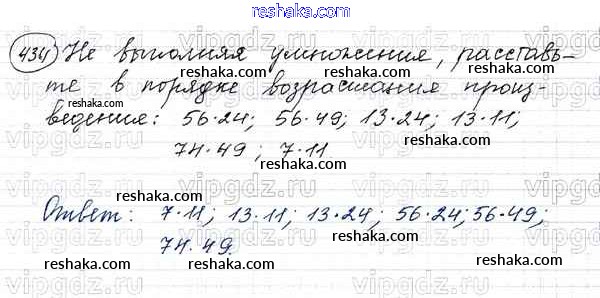 reshaka.com
434 Не выполняя умножения, расставь-
те в порядке возрастания произ-
ведения: 56·24; 56·49; 13·24; 13·11;
74·49; 7·11
Ответ: 7·11; 13·11; 13·24; 56·24; 56·49;
74·49.
reshaka.com
reshaka.com
reshaka.com
reshaka.com
reshaka.com
reshaka.com
reshaka.com
reshaka.com
reshaka.com
reshaka.com
vipgdz.ru
vipgdz.ru
vipgdz.ru